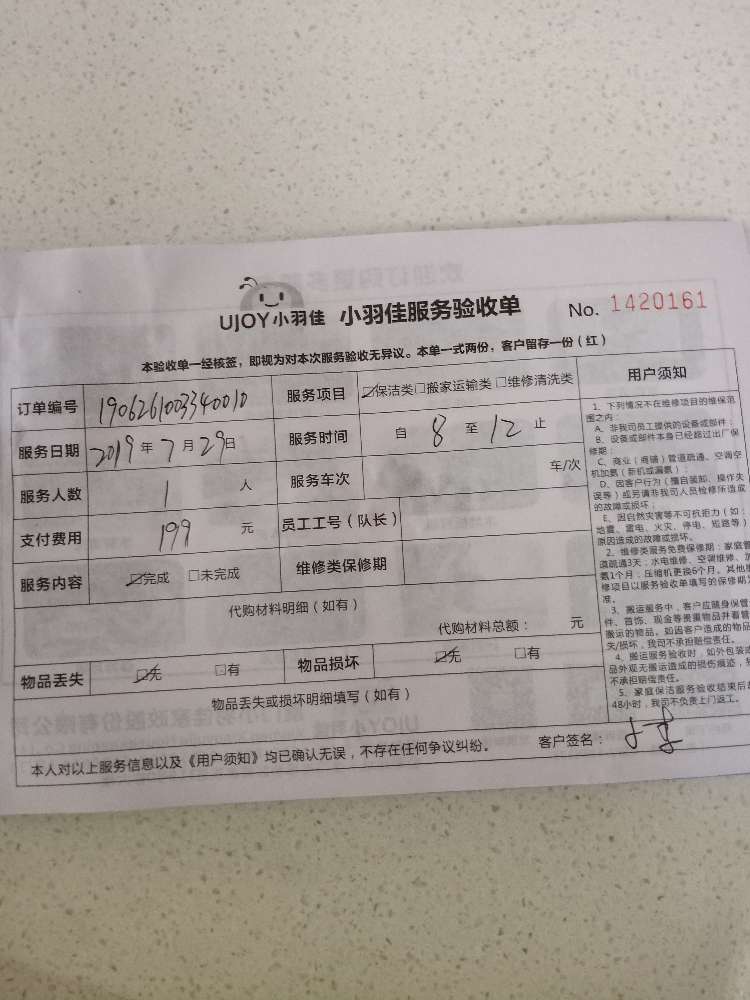 UJOY小羽佳 小羽佳服务验收单 No. 1420161
本验收单一经核签，即视为对本次服务验收无异议。本单一式两份，客户留存一份（红）
订单编号 1906261003340010 服务项目 ☑保洁类□搬家运输类□维修清洗类
服务日期 2019年7月29日 服务时间 自 8 至 12 止
服务人数 1 人 服务车次 车/次
支付费用 199 元 员工工号（队长）
服务内容 ☑完成 □未完成 维修类保修期
代购材料明细（如有）
代购材料总额： 元
物品丢失 ☑无 □有 物品损坏 ☑无 □有
物品丢失或损坏明细填写（如有）
本人对以上服务信息以及《用户须知》均已确认无误，不存在任何争议纠纷。 客户签名：
用户须知
1、下列情况不在维修项目的维保范
围之内：
A、非我司员工提供的设备或部件；
B、设备或部件本身已经超过出厂保
修期；
C、商业（商铺）管道疏通、空调空
机加氨（新机或漏氨）；
D、因客户行为（擅自装卸、操作失
误等）或另请非我司人员检修所造成
的故障或损坏；
E、因自然灾害等不可抗拒力（如：
地震、雷电、火灾、停电、短路等）
原因造成的故障或损坏。
2、维修类服务免费保修期：家庭管
道疏通3天；水电维修、空调维修、加
氨1个月；压缩机更换6个月。其他维
修项目以服务验收单填写的保修期为
准。
3、搬运服务中，客户应随身保管
件、首饰、现金等贵重物品并看管
搬运的物品。如因客户造成的物品
失/损坏，我司不承担赔偿责任。
4、搬运服务验收时，如外包装或
品外观无搬运造成的损伤痕迹，
不承担赔偿责任。
5、家庭保洁服务验收结束后超
48小时，我司不负责上门返工。